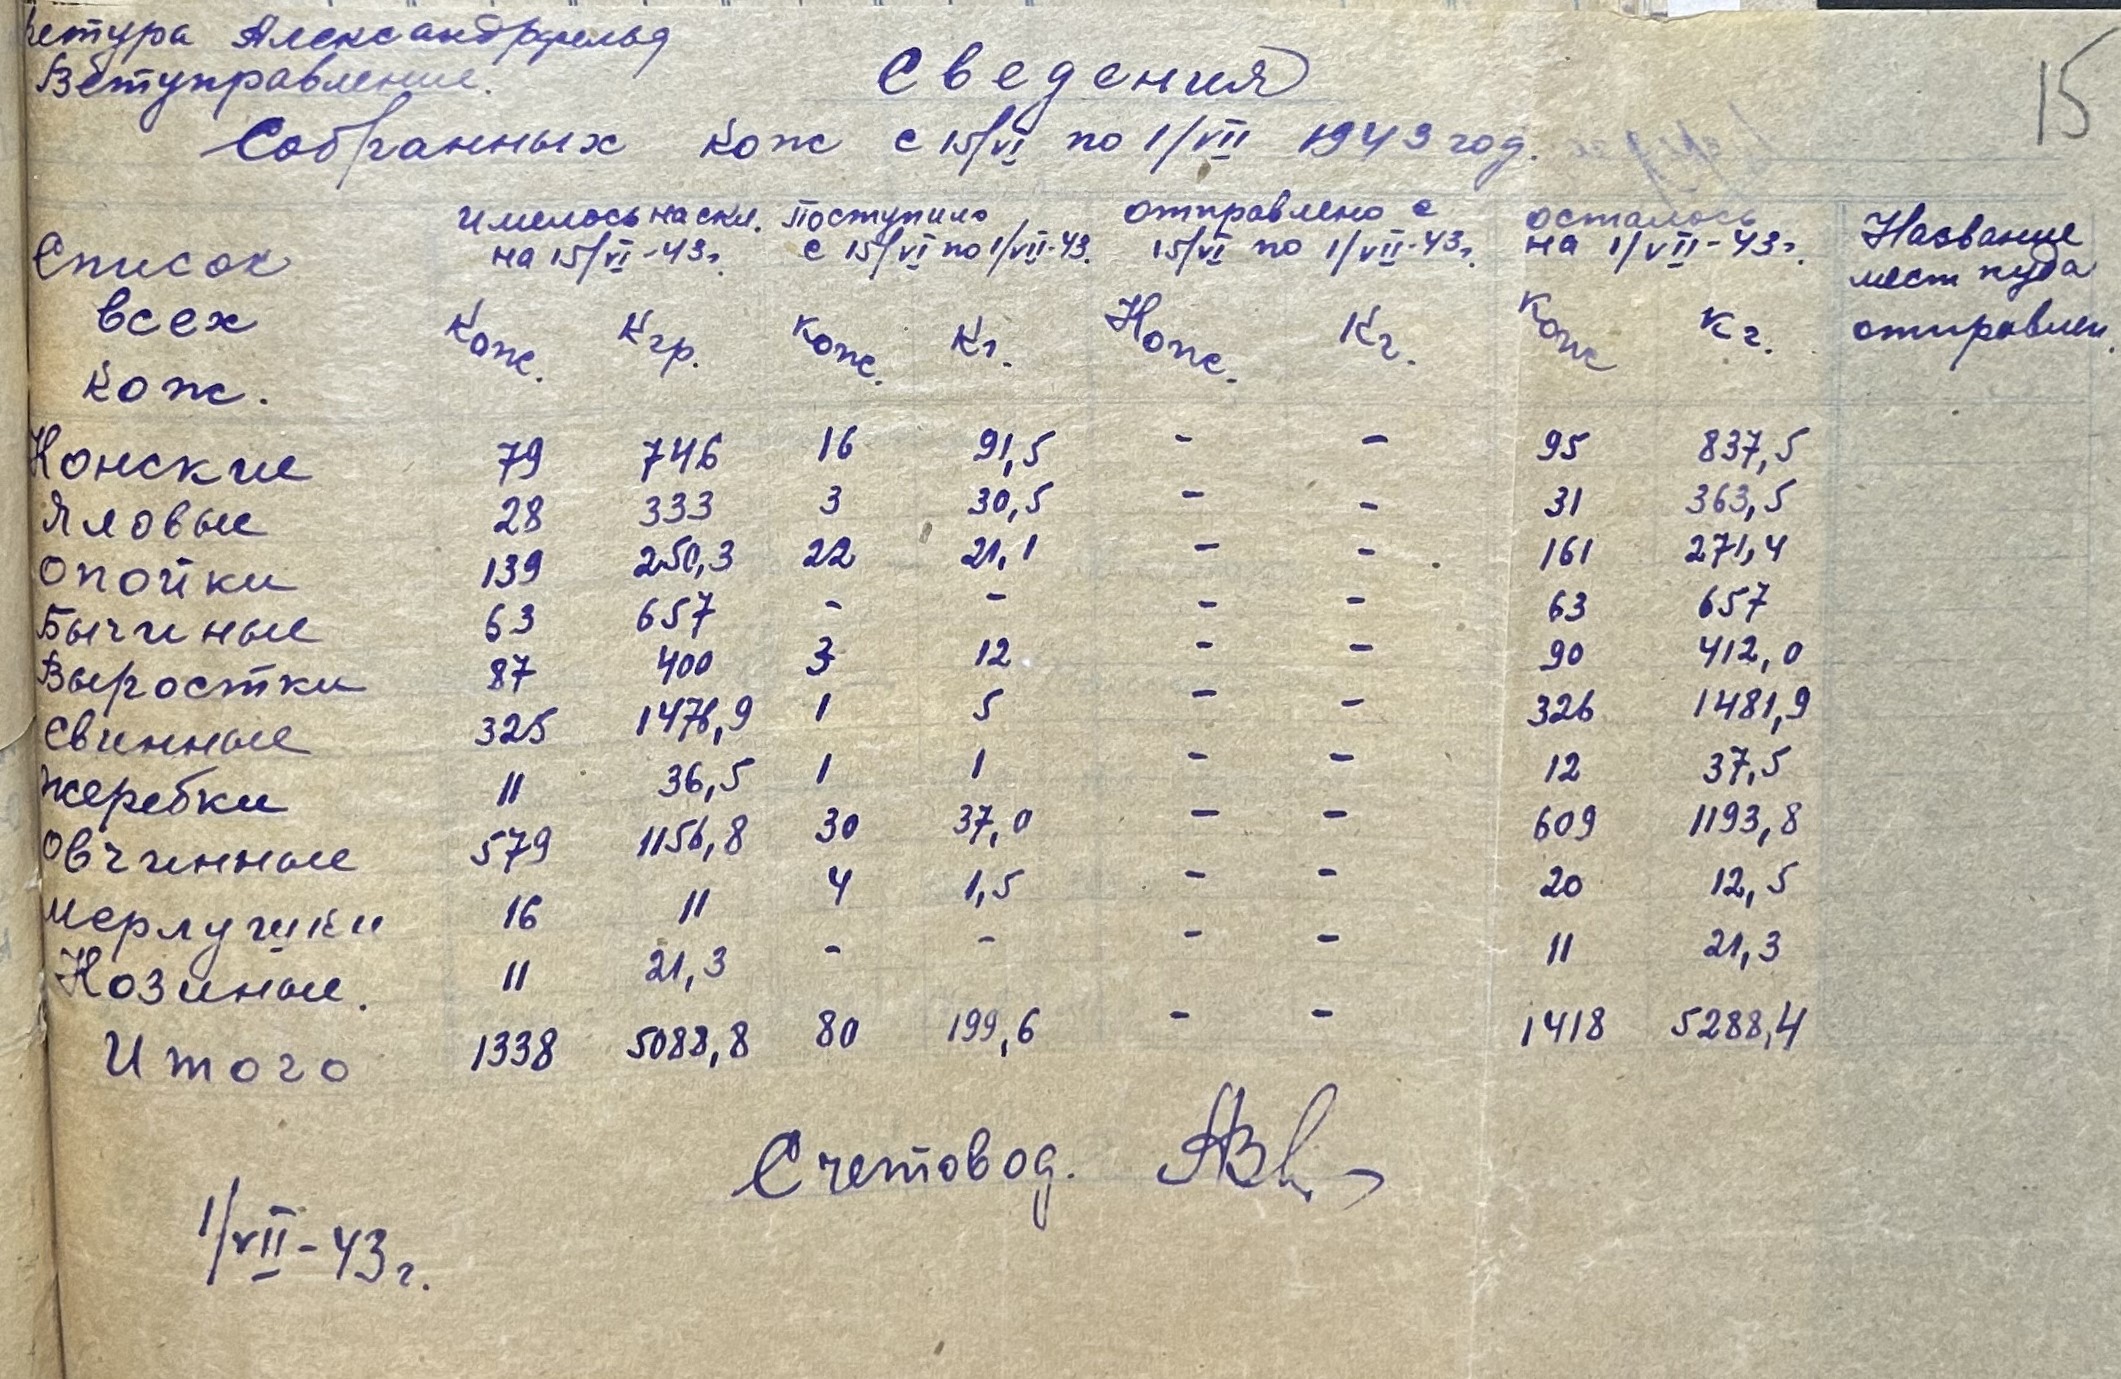 Александрфельд
Ветуправление.
15
Сведения
Собранных кож с 15/VI по 1/VII 1943 год.
Список всех кож. имелось на скл. на 15/VI-43г. поступило с 15/VI по 1/VII-43. отправлено с 15/VI по 1/VII-43г. осталось на 1/VII-43г. Название мест куда отправлен.
Кож. Кгр. Кож. Кг. Кож. Кг. Кож Кг.
Конские 79 746 16 91,5 - - 95 837,5
Яловые 28 333 3 30,5 - - 31 363,5
Опойки 139 250,3 22 21,1 - - 161 271,4
Бычиные 63 657 - - - - 63 657
Выростки 87 400 3 12 - - 90 412,0
Свинные 325 1476,9 1 5 - - 326 1481,9
Жеребки 11 36,5 1 1 - - 12 37,5
Овчинные 579 1156,8 30 37,0 - - 609 1193,8
Мерлушки 16 11 4 1,5 - - 20 12,5
Козиные. 11 21,3 - - - - 11 21,3
Итого 1338 5088,8 80 199,6 - - 1418 5288,4
Счетовод.
1/VII-43г.